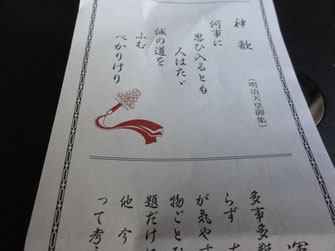 神歌
(明治天皇御集)
何事に
思ひ入るとも
人はたゞ
誠の道を
ふむ
べかりけり
多事多難
らず
が気や
物ごと
題だけ
他今
って考